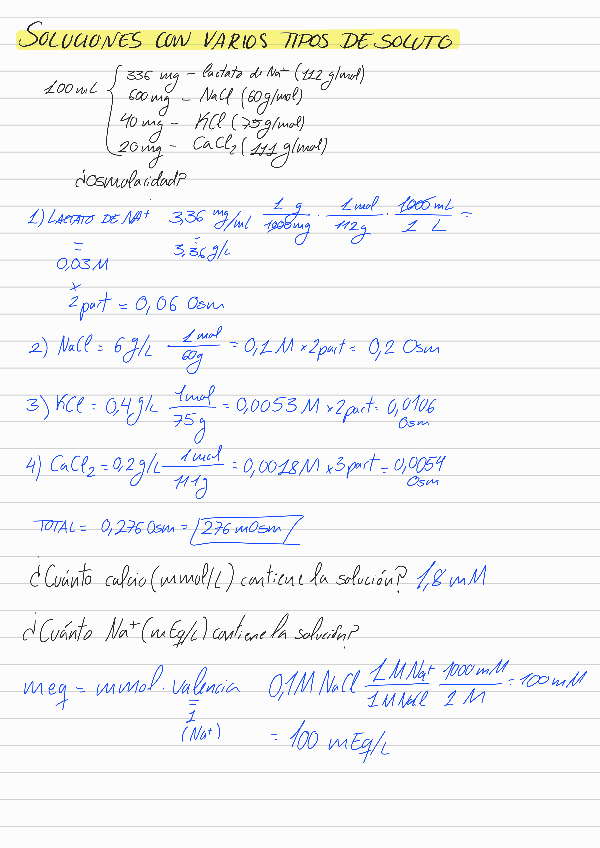 SOLUCIONES CON VARIOS TIPOS DE SOLUTO
100mL { 336 mg – lactato de Na+ (112 g/mol)
600mg – NaCl (60g/mol)
40mg – KCl (75g/mol)
20mg – CaCl2 (111 g/mol)
¿Osmolaridad?
1) LACTATO DE NA+ 3,36 mg/ml 1 g/1000mg · 1mol/112g · 1000mL/1 L =
= 0,03M = 3,36 g/L
x
2part = 0,06 Osm
2) NaCl = 6g/L 1mol/60g = 0,1M x 2part = 0,2 Osm
3) KCl = 0,4g/L 1mol/75g = 0,0053M x 2part = 0,0106 Osm
4) CaCl2 = 0,2g/L 1mol/111g = 0,0018M x 3part = 0,0054 Osm
TOTAL = 0,276 Osm = 276 mOsm
¿Cuánto calcio (mmol/L) contiene la solución? 1,8 mM
¿Cuánto Na+ (mEq/L) contiene la solución?
meq = mmol · valencia 0,1M NaCl 1 M Na+/1 M NaCl 1000 mM/1 M = 100 mM
= 1 (Na+) = 100 mEq/L